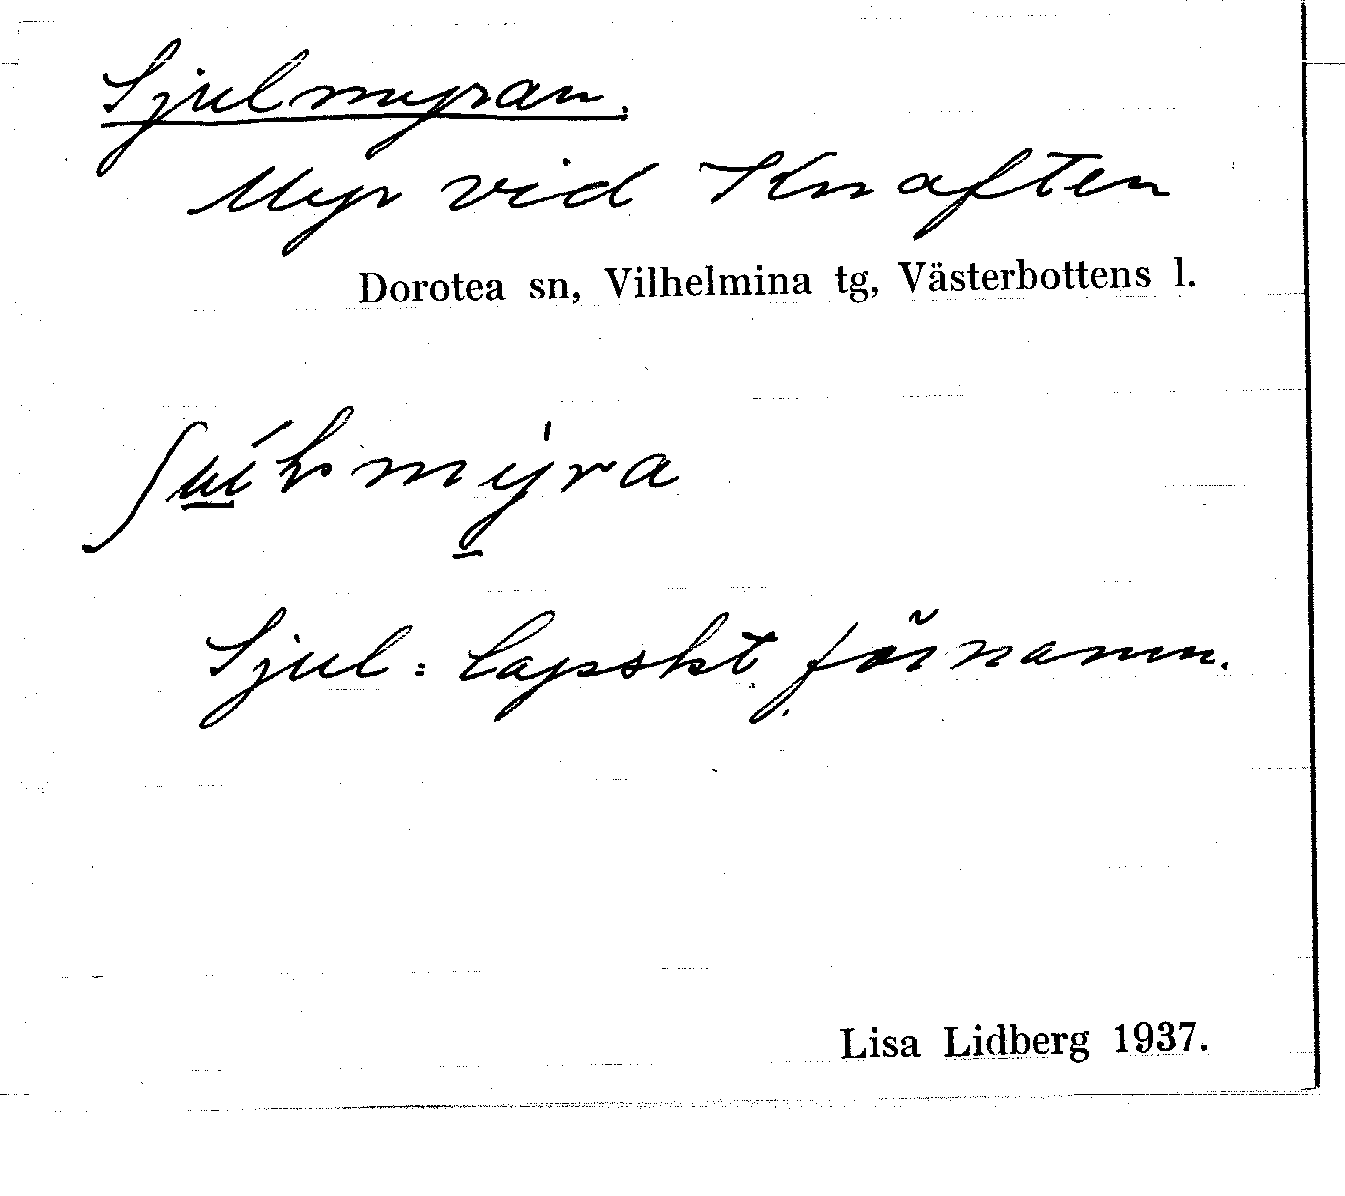 Sjulmyran.
Myr vid Knaften
Dorotea sn, Vilhelmina tg, Västerbottens l.
Sjul: lapskt förnamn.
Lisa Lidberg 1937.